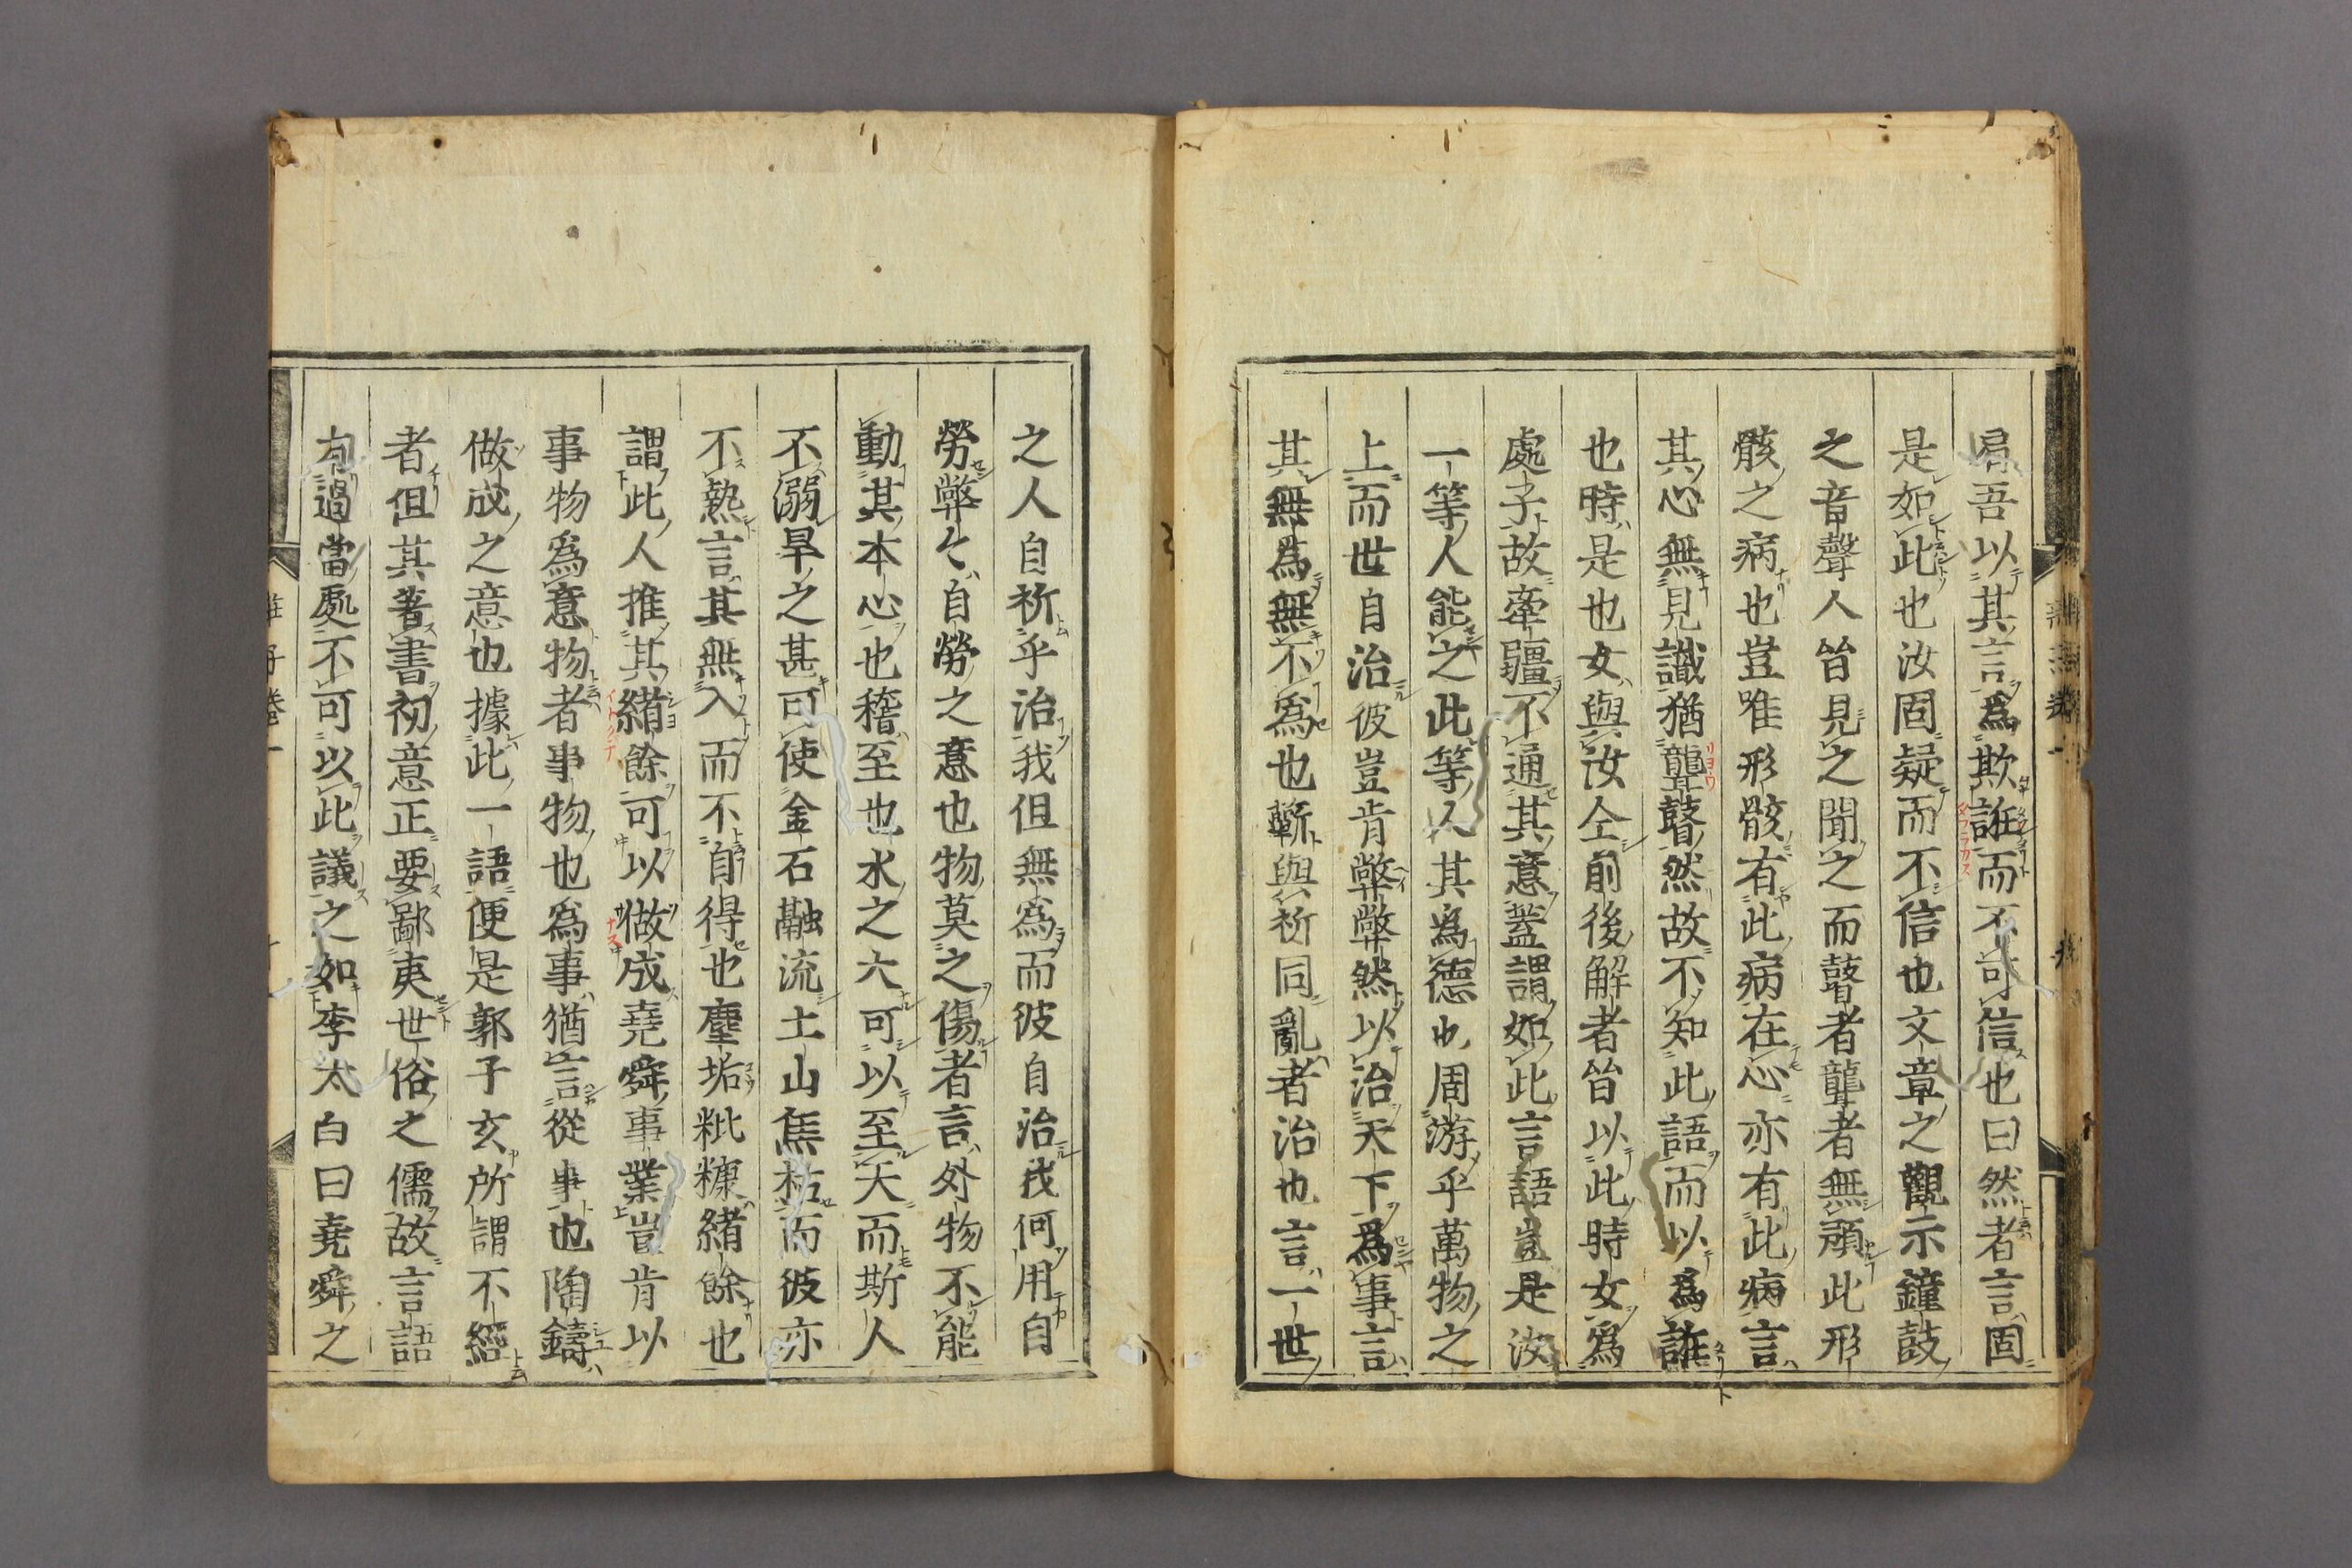 扃吾以其言爲欺誑而不可信也曰然者言固
是如此也汝固疑而不信也文章之觀示鐘鼓
之音聲人皆見之聞之而瞽者聾者無預此形
骸之病也豈唯形骸有此病在心亦有此病言
其心無見識猶聾瞽然故不知此語而以爲誑
也時是也女與汝仝前後解者皆以此時女爲
處子故牽疆不通其意蓋謂如此言語豈是汝
一等人能之此等人其爲德也周游乎萬物之
上而世自治彼豈肯弊弊然以治天下爲事言
其無爲無不爲也蘄與祈同亂者治也言一世
之人自祈乎治我但無爲而彼自治我何用自
勞弊々自勞之意也物莫之傷者言外物不能
動其本心也稽至也水之大可以至天而斯人
不溺旱之甚可使金石融流土山焦枯而彼亦
不熱言其無入而不自得也塵垢粃糠緒餘也
謂此人推其緒餘可以做成堯舜事業豈肯以
事物爲意物者事物也爲事猶言從事也陶鑄
做成之意也據此一語便是郭子玄所謂不經
者但其著書初意正要鄙夷世俗之儒故言語
有過當處不可以此議之如李太白曰堯舜之